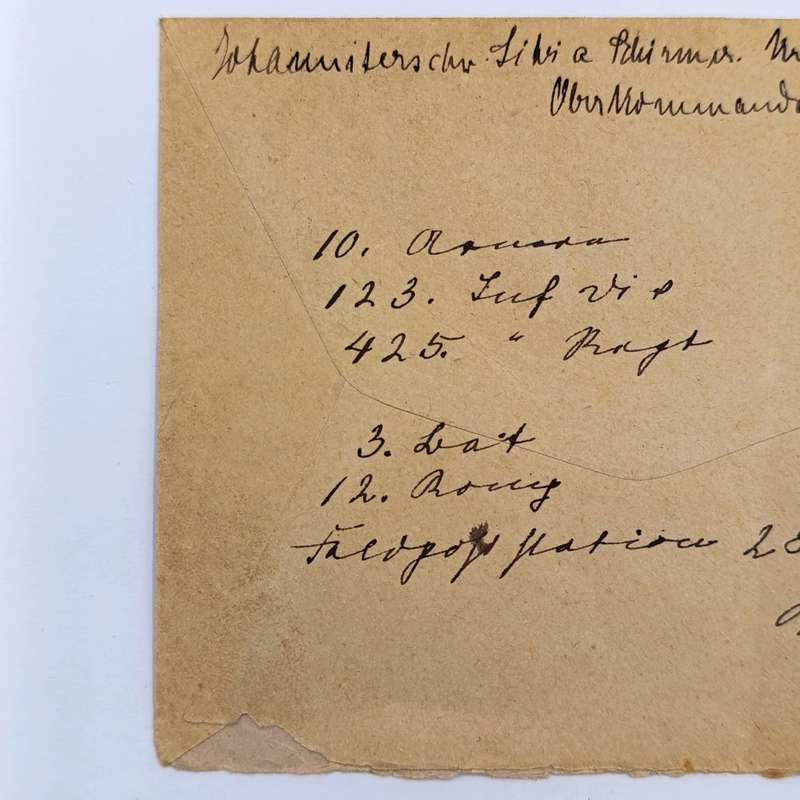 Johanniterschw. Livia Schirmer. Nr
Oberkommando
10. Armee
123. Inf Div
425. " Regt
3. Bat
12. Komp
Feldpoststation 28